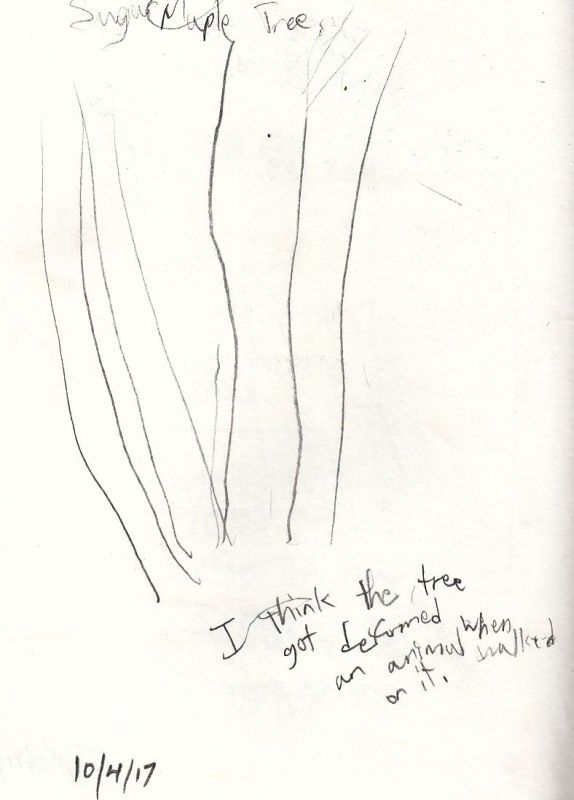 Sugar Maple Trees
I think the tree
got deformed when
an animal walked
on it.
10/4/17